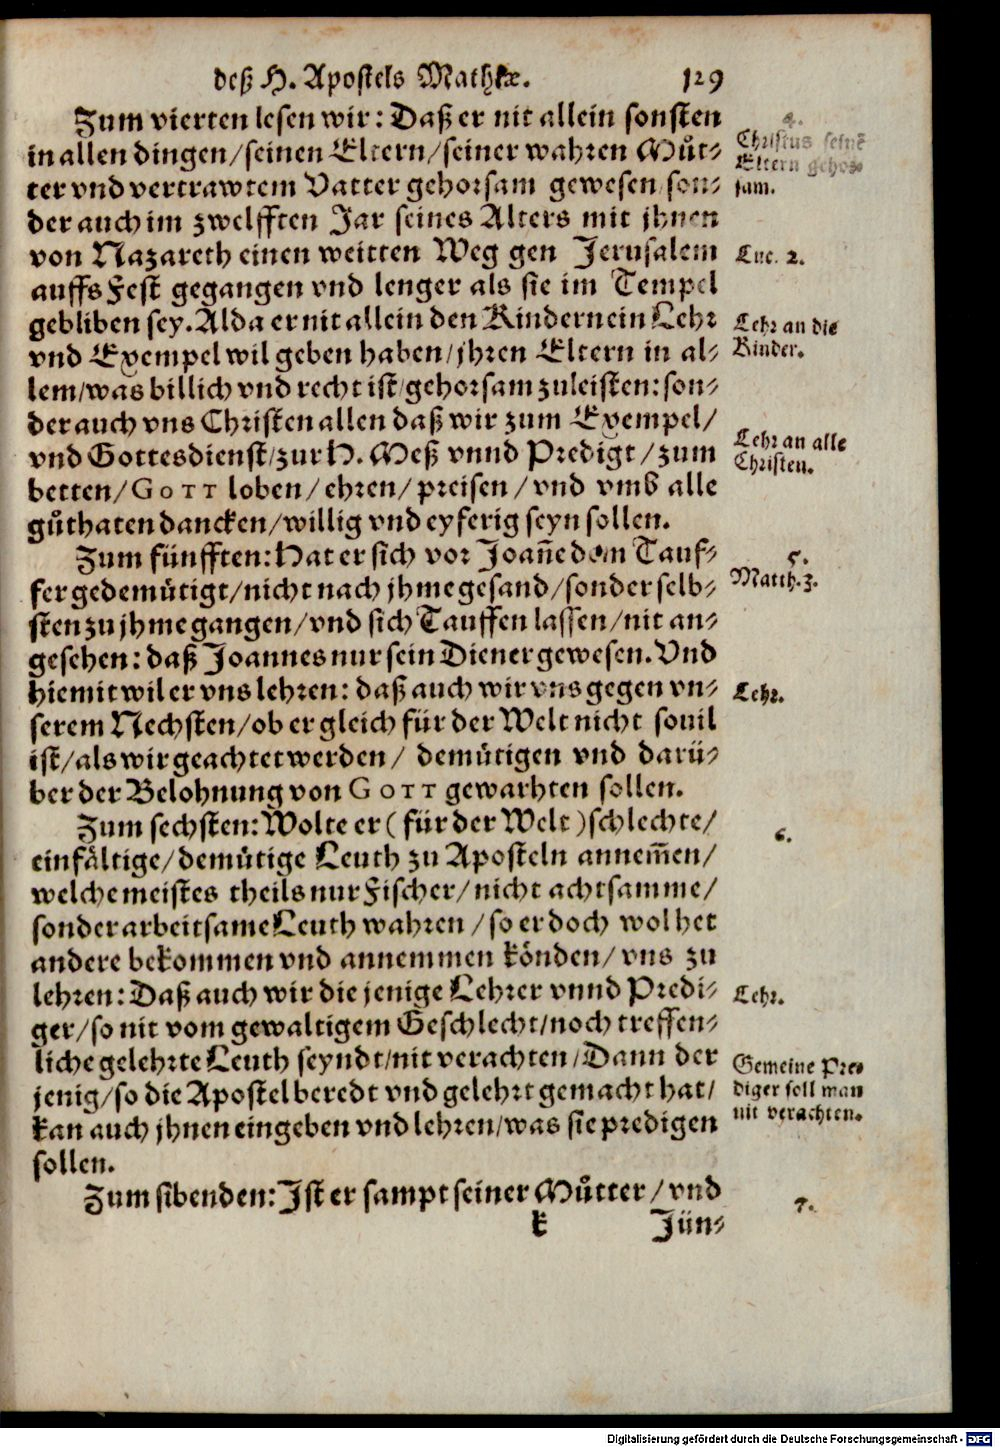 deß H. Apostels Mathiæ. 129
Zum vierten lesen wir: Daß er nit allein sonsten
in allen dingen/seinen Eltern/seiner wahren Můt⸗
ter vnd vertrawtem Vatter gehorsam gewesen/son⸗
der auch im zwelfften Jar seines Alters mit jhnen
von Nazareth einen weitten Weg gen Jerusalem
auffs Fest gegangen vnd lenger als sie im Tempel
gebliben sey. Alda er nit allein den Kindern ein Lehr
vnd Exempel wil geben haben/jhren Eltern in al⸗
lem/was billich vnd recht ist/gehorsam zuleisten: son⸗
der auch vns Christen allen daß wir zum Exempel/
vnd Gottesdienst/zur H. Meß vnnd Predigt/zum
betten/GOTT loben/ehren/preisen/vnd vmb alle
gůthaten dancken/willig vnd eyferig seyn sollen.
Zum fünfften: Hat er sich vor Joañe dem Tauf⸗
fer gedemütigt/nicht nach jhme gesand/sonder selb⸗
sten zu jhme gangen/vnd sich Tauffen lassen/nit an⸗
gesehen: daß Joannes nur sein Diener gewesen. Vnd
hiemit wil er vns lehren: daß auch wir vns gegen vn⸗
serem Nechsten/ob er gleich für der Welt nicht souil
ist/als wir geachtet werden/ demütigen vnd darü⸗
ber der Belohnung von GOTT gewarhten sollen.
Zum sechsten: Wolte er (für der Welt) schlechte/
einfältige/demütige Leuth zu Aposteln annem̃en/
welche meistes theils nur Fischer/nicht achtsamme/
sonder arbeitsame Leuth wahren/so er doch wol het
andere bekommen vnd annemmen könden/vns zu
lehren: Daß auch wir die jenige Lehrer vnnd Predi⸗
ger/so nit vom gewaltigem Geschlecht/noch treffen⸗
liche gelehrte Leuth seyndt/nit verachten/Dann der
jenig/so die Apostel beredt vnd gelehrt gemacht hat/
kan auch jhnen eingeben vnd lehren/was sie predigen
sollen.
Zum sibenden: Ist er sampt seiner Můtter/vnd
k Jün⸗
4.
Christus seinē
Eltern gehor⸗
sam.
Luc. 2.
Lehr an die
Kinder.
Lehr an alle
Christen.
5.
Matth. 3.
Lehr.
6.
Lehr.
Gemeine Pre⸗
diger soll man
nit verachten.
7.
Digitalisierung gefördert durch die Deutsche Forschungsgemeinschaft - DFG